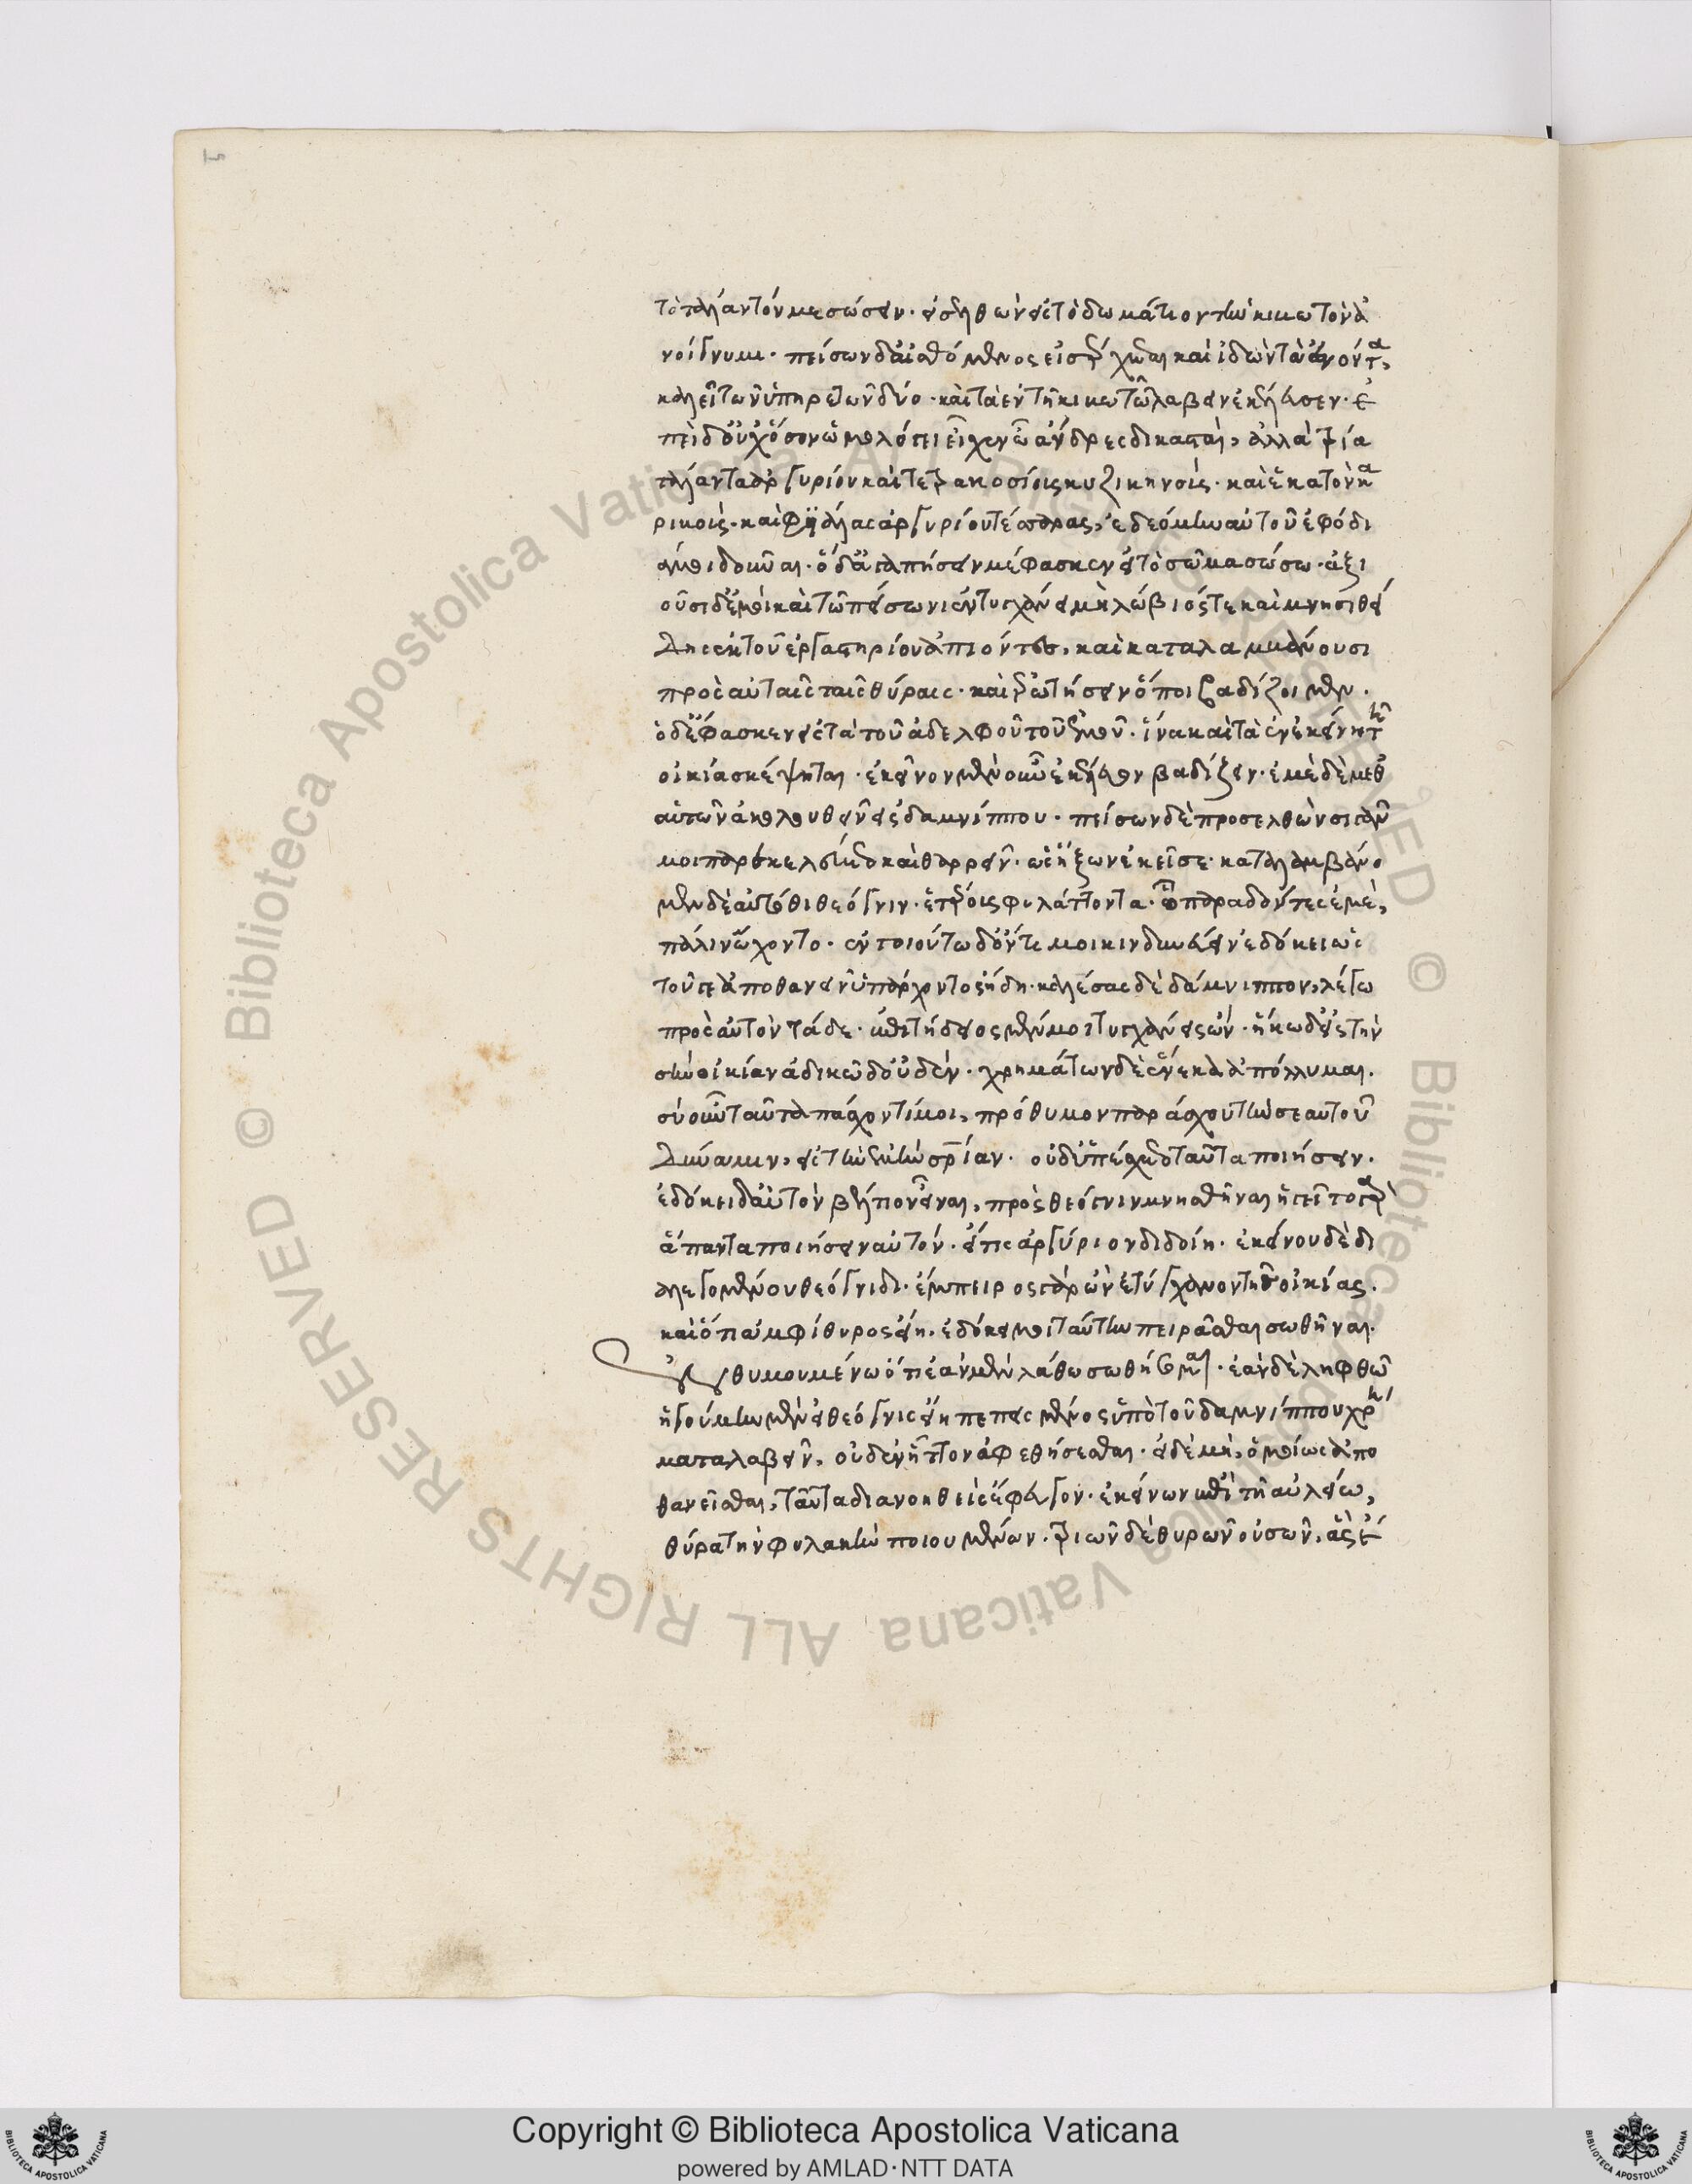 τὸ τάλαντόν με σώσειν. εἰσελθὼν εἰς τὸ δωμάτιον τὴν κιβωτὸν ἀ
νοίγνυμι. πείσων δ' αἰσθόμενος εἰσέρχεται καὶ ἰδὼν τὰ ἐνόντα,
καλεῖ τῶν ὑπηρετῶν δύο. καὶ τὰ ἐν τῇ κιβωτῷ λαβεῖν ἐκέλευσεν. ἐ
πεὶ δ' οὐχ ὅσον ὡμολόγει εἶχεν ὦ ἄνδρες δικασταί, ἀλλὰ τρία
τάλαντα ἀργυρίου καὶ τετρακοσίοις κυζικηνοῖς. καὶ ἑκατὸν κα
ρικοῖς. καὶ φιάλας ἀργυρίου τέσσαρας, ἐδεόμην αὐτοῦ ἐφόδι
ά μοι δοῦναι. ὁ δ' ἀγαπήσειν με ἔφασκεν εἰ τὸ σῶμα σώσω. ἐξι
οῦσι δ' ἐμοὶ καὶ τῶ πείσωνι ἐντυγχάνει μηλόβιός τε καὶ μνησιθεί
δης ἐκ τοῦ ἐργαστηρίου ἀπιόντες, καὶ καταλαμβάνουσι
πρὸς αὐταῖς ταῖς θύραις. καὶ ἐρωτῶσιν ὅποι βαδίζοιμεν.
ὁ δ' ἔφασκεν εἰς τὰ τοῦ ἀδελφοῦ τοῦ ἐμοῦ. ἵνα καὶ τὰ ἐν ἐκείνῃ τῇ
οἰκία σκέψηται. ἐκεῖνον μὲν οὖν ἐκέλευον βαδίζειν. ἐμὲ δὲ μεθ'
αὑτῶν ἀκολουθεῖν εἰς δαμνίππου. πείσων δὲ προσελθὼν σιγᾶν
μοι παρεκελεύετο καὶ θαρρεῖν. ὡς ἥξων ἐκεῖσε. καταλαμβάνο
μεν δὲ αὐτόθι θέογνιν. ἑτέρους φυλάττοντα. ᾧ παραδόντες ἐμὲ,
πάλιν ᾤχοντο. ἐν τοιούτω δ' ὄντι μοι κινδυνεύειν ἐδόκει ὡς
τοῦ γε ἀποθανεῖν ὑπάρχοντος ἤδη. καλέσας δὲ δάμνιππον, λέγω
πρὸς αὐτὸν τάδε. ἐπιτήδειος μέν μοι τυγχάνεις ὤν. ἥκω δ' εἰς τὴν
σὴν οἰκίαν ἀδικῶ δ' οὐδέν. χρημάτων δὲ ἕνεκα ἀπόλλυμαι.
σὺ οὖν ταῦτα πάσχοντί μοι, πρόθυμον παράσχου τὴν σεαυτοῦ
δύναμιν, εἰς τὴν ἐμὴν σωτηρίαν. ὁ δ' ὑπέσχετο ταῦτα ποιήσειν.
ἐδόκει δ' αὐτὸν βέλτιον εἶναι, πρὸς θέογνιν μνησθῆναι ἡγεῖτο γὰρ
ἅπαντα ποιήσειν αὐτόν. εἴ τις ἀργύριον διδοίη. ἐκείνου δὲ δι
αλεγομένου θεόγνιδι. ἔμπειρος γὰρ ὢν ἐτύγχανον τῆς οἰκίας.
καὶ ὅτι ἀμφίθυρος εἴη. ἐδόκει μοι ταύτῃ πειρᾶσθαι σωθῆναι.
ἐνθυμουμένω ὅτι ἐὰν μὲν λάθω σωθήσομαι. ἐὰν δὲ ληφθῶ
ἡγούμην μὲν εἰ θέογνις εἴη πεπεισμένος ὑπὸ τοῦ δαμνίππου χρή
ματα λαβεῖν, οὐδὲν ἧττον ἀφεθήσεσθαι. εἰ δὲ μὴ, ὁμοίως ἀπο
θανεῖσθαι, ταῦτα διανοηθεὶς ἔφευγον. ἐκείνων ἐπὶ τῇ αὐλείω,
θύρα τὴν φυλακὴν ποιουμένων. τριῶν δὲ θυρῶν οὐσῶν, ἃς ἔ